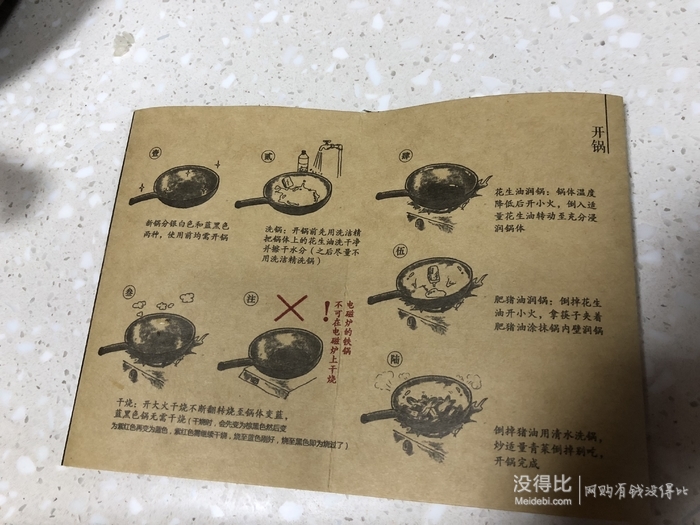 开锅
壹
新锅分银白色和蓝黑色
两种，使用前均需开锅
贰
洗锅：开锅前先用洗洁精
把锅体上的花生油洗干净
并擦干水分（之后尽量不
用洗洁精洗锅）
叁
注
电磁炉的铁锅
不可在电磁炉上干烧
！
干烧：开大火干烧不断翻转烧至锅体变蓝，
蓝黑色锅无需干烧（干烧时，会先变为棕黑色然后变
为紫红色再变为蓝色，紫红色需继续干烧，烧至蓝色刚好，烧至黑色即为烧过了）
肆
花生油润锅：锅体温度
降低后开小火，倒入适
量花生油转动至充分浸
润锅体
伍
肥猪油润锅：倒掉花生
油开小火，拿筷子夹着
肥猪油涂抹锅内壁润锅
陆
倒掉猪油用清水洗锅，
炒适量青菜倒掉别吃，
开锅完成
没得比
Meidebi.com
网购有钱没得比